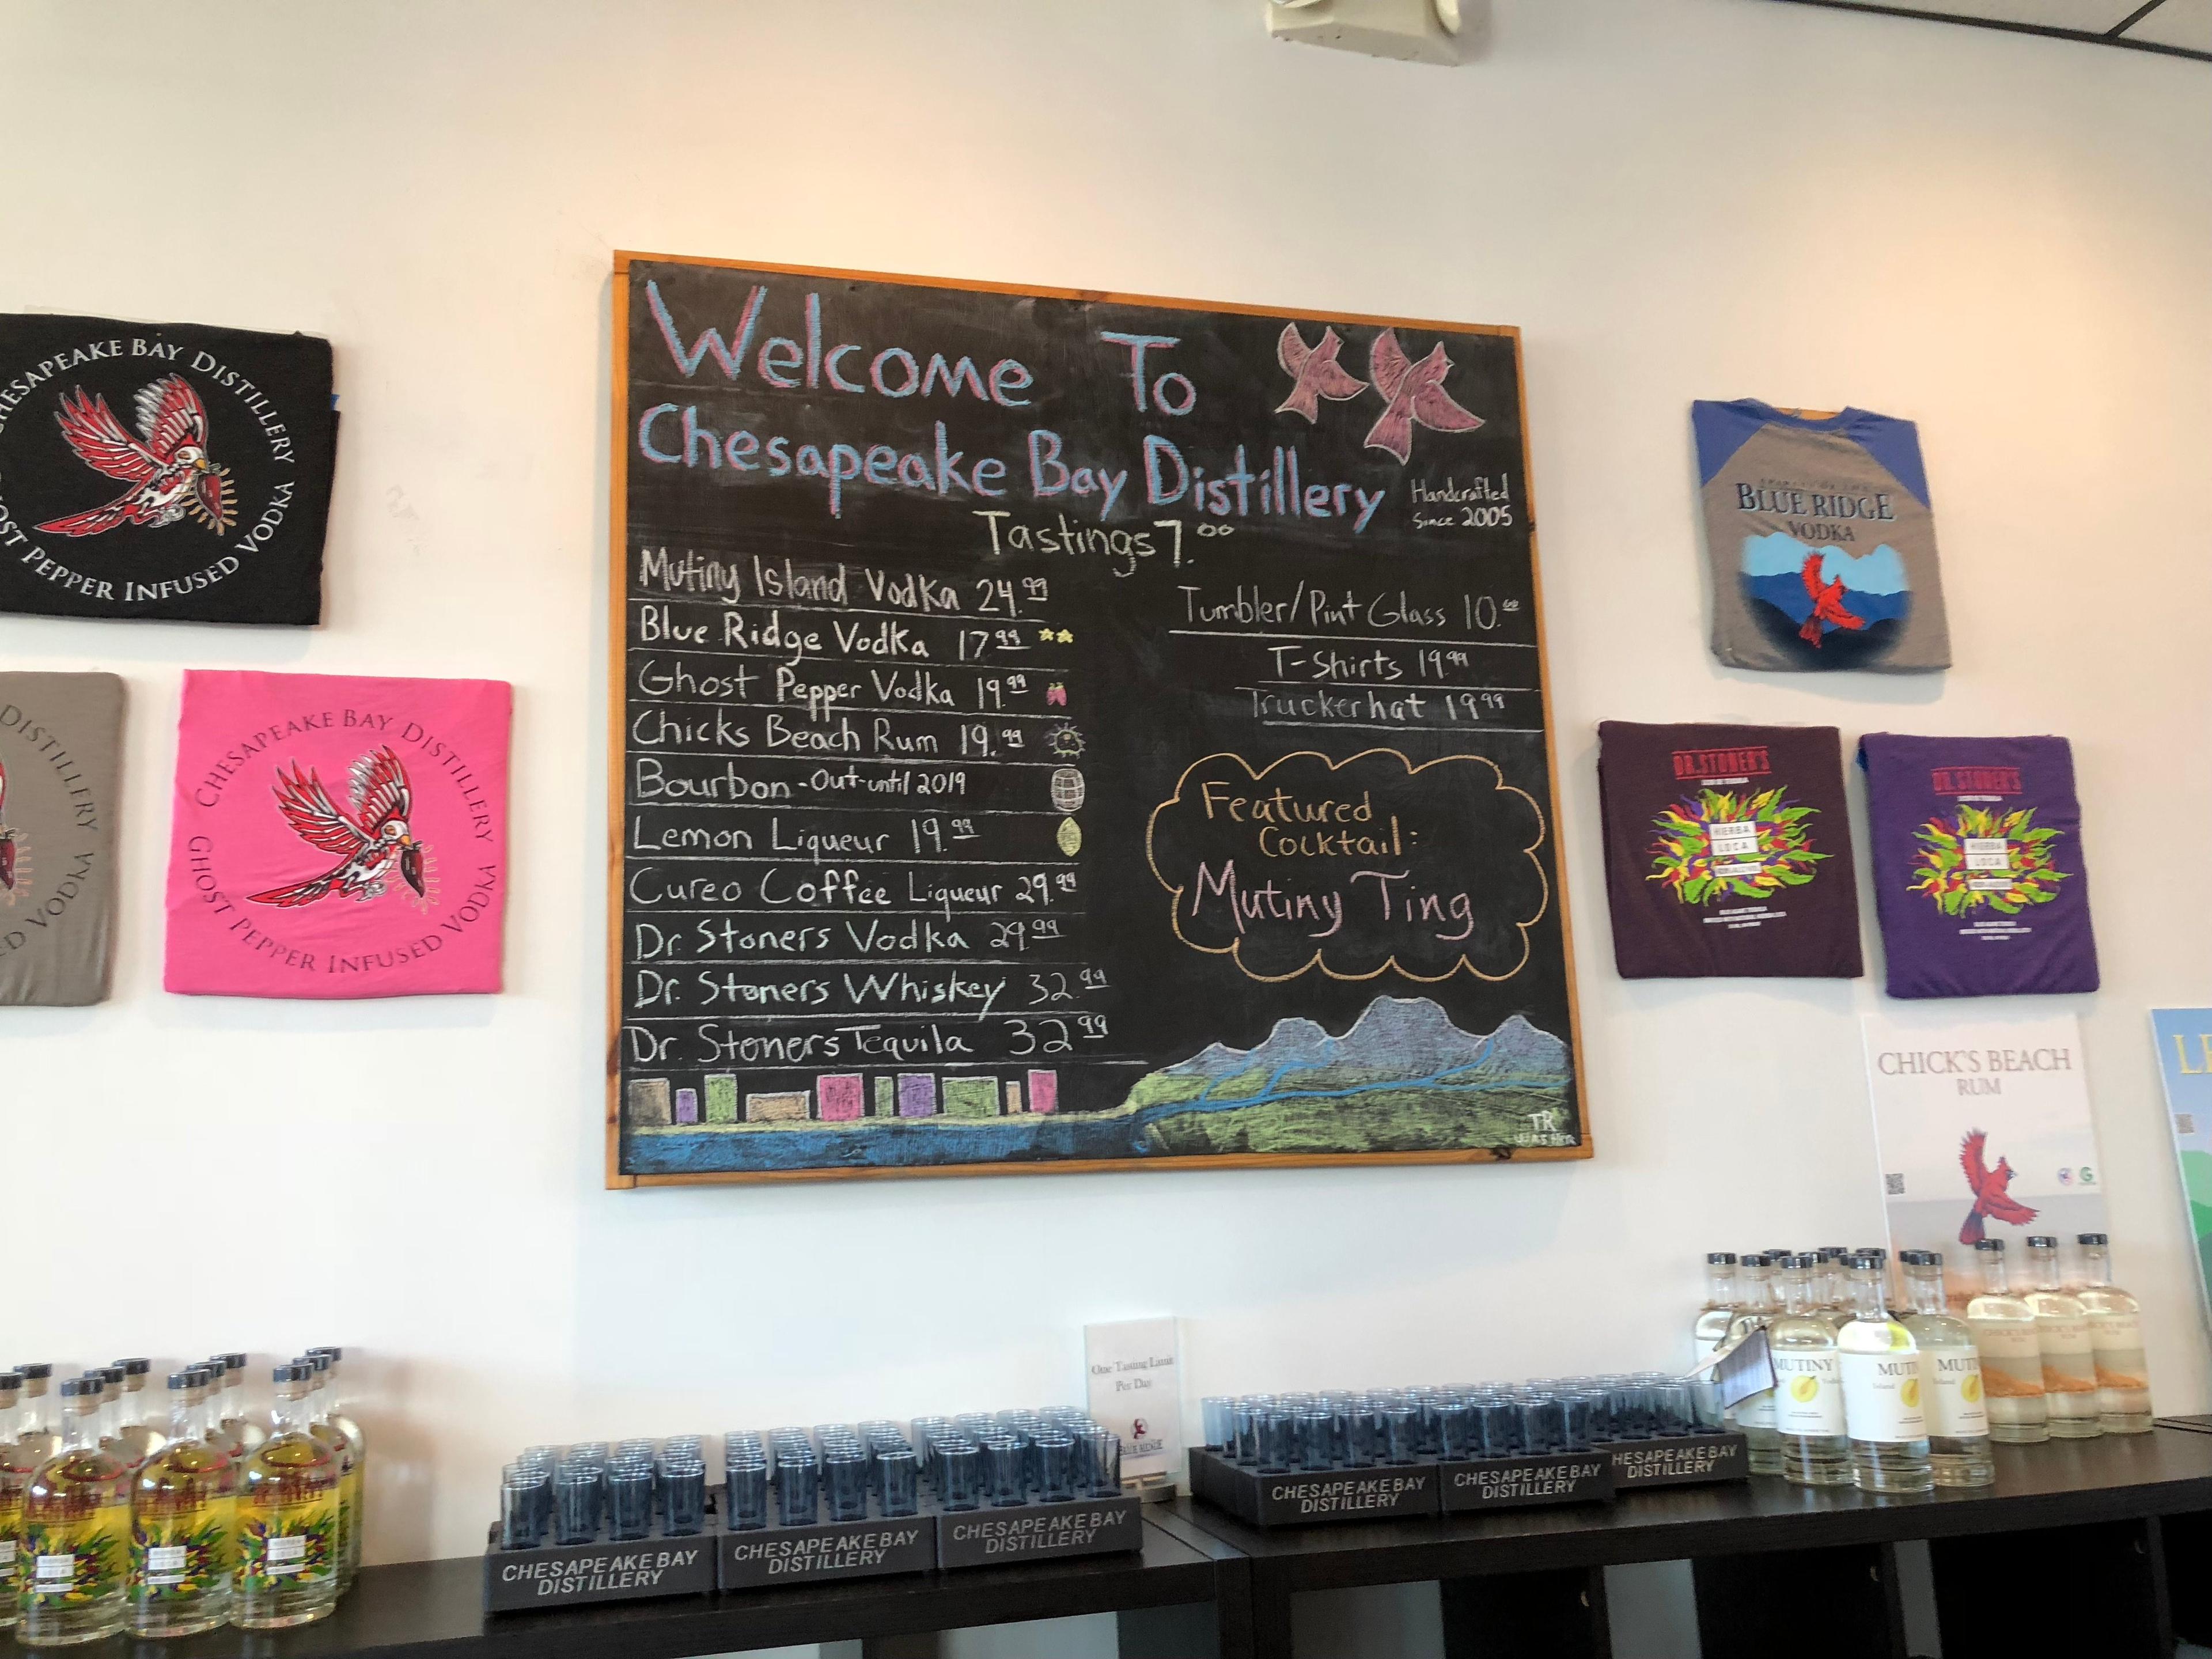 Welcome To
Chesapeake Bay Distillery
Handcrafted
Since 2005
Tastings 7.00
Mutiny Island Vodka 24.99
Blue Ridge Vodka 17.99
Ghost Pepper Vodka 19.99
Chicks Beach Rum 19.99
Bourbon - Out - until 2019
Lemon Liqueur 19.99
Cureo Coffee Liqueur 29.99
Dr. Stoners Vodka 29.99
Dr. Stoners Whiskey 32.99
Dr. Stoners Tequila 32.99
Tumbler/Pint Glass 10.00
T-Shirts 19.99
Truckerhat 19.99
Featured
Cocktail:
Mutiny Ting
TR
CHESAPEAKE BAY DISTILLERY
GHOST PEPPER INFUSED VODKA
DISTILLERY
VODKA
CHESAPEAKE BAY DISTILLERY
GHOST PEPPER INFUSED VODKA
BLUE RIDGE
VODKA
DR. STONER'S
HIERBA
LOCA
DR. STONER'S
HIERBA
LOCA
CHICK'S BEACH
RUM
One Tasting Limit
Per Day
BLUE RIDGE
CHESAPEAKE BAY
DISTILLERY
CHESAPEAKE BAY
DISTILLERY
CHESAPEAKE BAY
DISTILLERY
CHESAPEAKE BAY
DISTILLERY
CHESAPEAKE BAY
DISTILLERY
HESAPEAKE BAY
DISTILLERY
MUTINY
Island Vodka
MUTI
MUT
Island